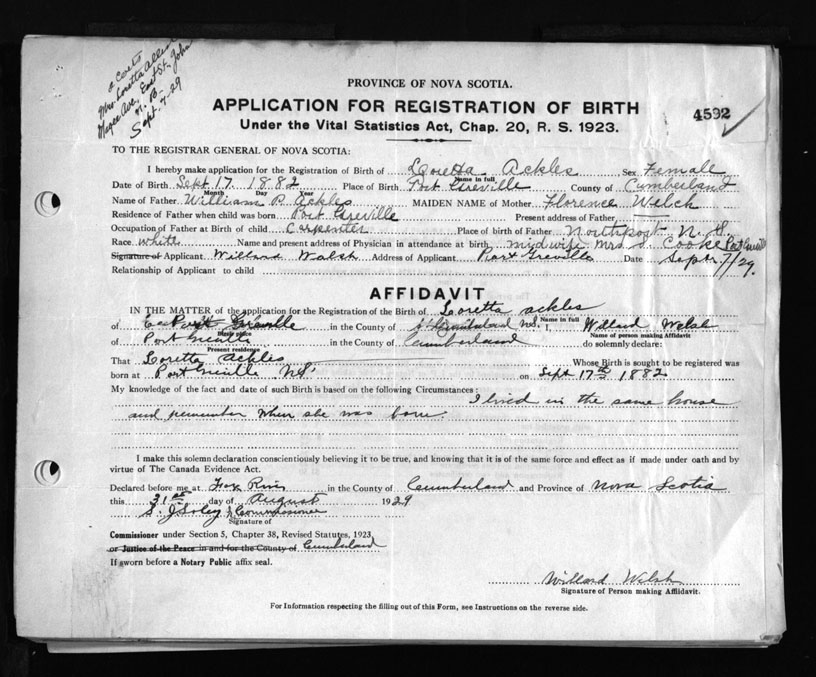 c Certs
Mrs. Loretta
Ave, East St. John
N. B.
Sept. 7-29
PROVINCE OF NOVA SCOTIA.
APPLICATION FOR REGISTRATION OF BIRTH
4592
Under the Vital Statistics Act, Chap. 20, R. S. 1923.
TO THE REGISTRAR GENERAL OF NOVA SCOTIA:
I hereby make application for the Registration of Birth of Loretta Ackles Sex Female
Name in full
Date of Birth Sept 17 1882 Place of Birth Port Greville County of Cumberland
Month Day Year
Name of Father William P. Ackles MAIDEN NAME of Mother Florence Welch
Residence of Father when child was born Port Greville Present address of Father
Occupation of Father at Birth of child Carpenter Place of birth of Father Northport N. S.
Race White Name and present address of Physician in attendance at birth midwife Mrs Cooke Port Greville
Signature of Applicant Willard Walsh Address of Applicant Port Greville Date Septr 7/29.
Relationship of Applicant to child
AFFIDAVIT
IN THE MATTER of the application for the Registration of the Birth of Loretta Ackles
Name in full
of Port Greville in the County of Cumberland N.S. I, Willard Welsh
Birth place Name of person making Affidavit
of Port Greville in the County of Cumberland do solemnly declare:
Present residence
That Loretta Ackles Whose Birth is sought to be registered was
born at Port Greville N.S. on Sept 17th 1882
My knowledge of the fact and date of such Birth is based on the following Circumstances:
I lived in the same house
and remember when she was born.
I make this solemn declaration conscientiously believing it to be true, and knowing that it is of the same force and effect as if made under oath and by
virtue of The Canada Evidence Act.
Declared before me at Fox River in the County of Cumberland and Province of Nova Scotia
this 31st day of August 1929
S. J Soley Commissioner
Signature of
Commissioner under Section 5, Chapter 38, Revised Statutes, 1923
or Justice of the Peace in and for the County of Cumberland
If sworn before a Notary Public affix seal.
Willard Welsh
Signature of Person making Affidavit.
For Information respecting the filling out of this Form, see Instructions on the reverse side.